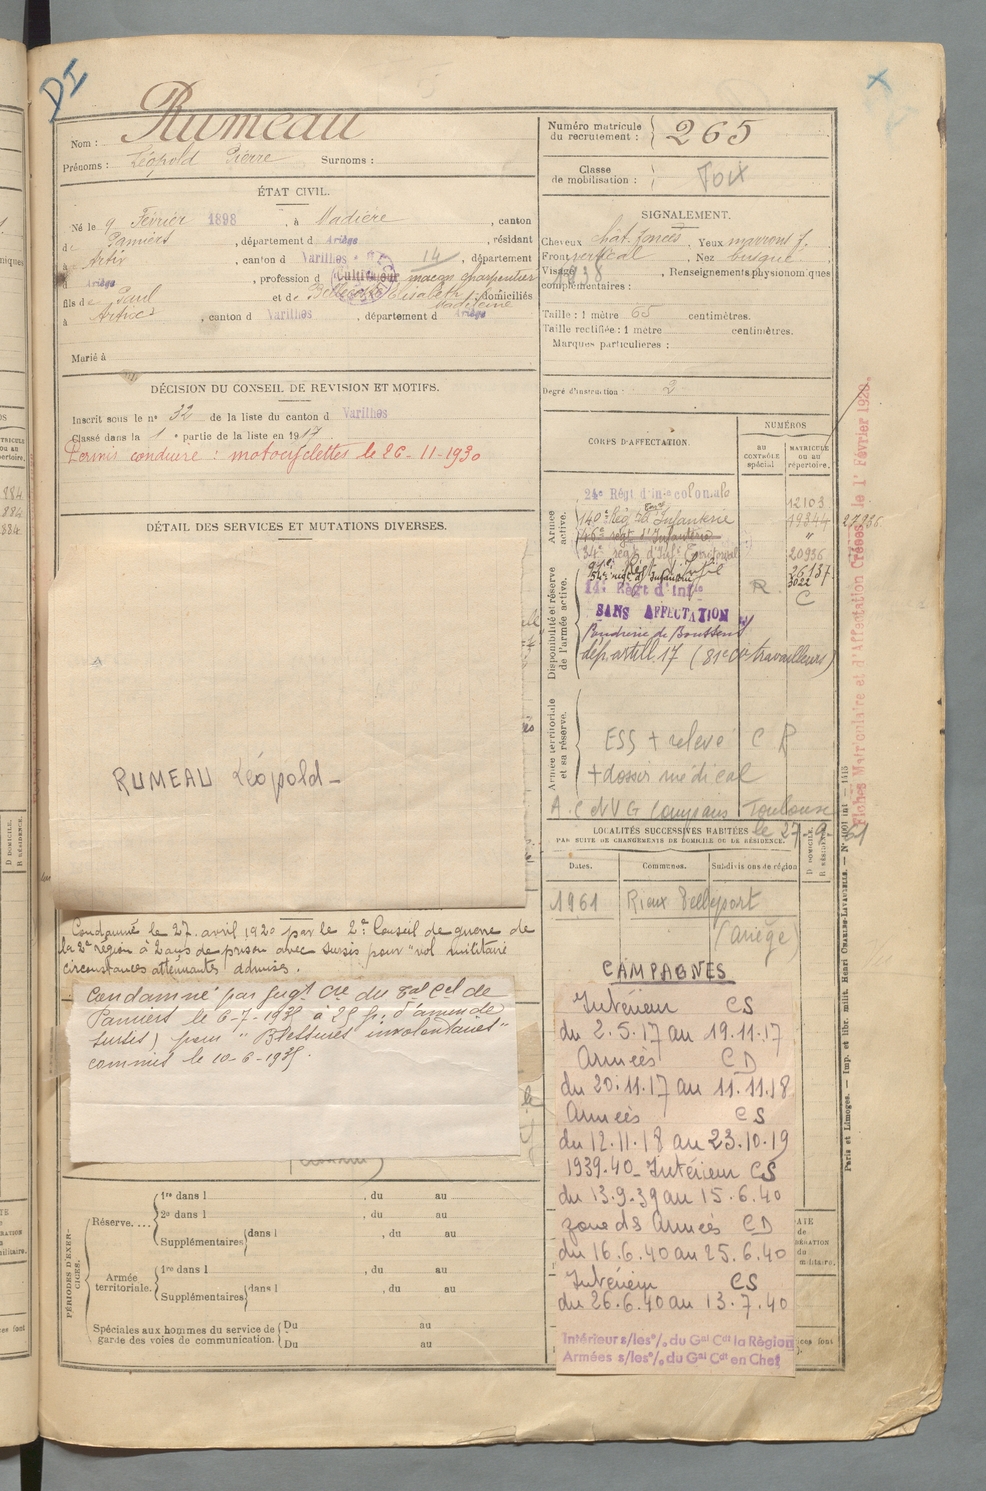 DI
Nom : Rumeau
Prénoms : Léopold Pierre Surnoms :
Numéro matricule du recrutement : 265
Classe de mobilisation : Foix
ÉTAT CIVIL.
Né le 9 Février 1898, à Madière, canton
de Pamiers, département d Ariège, résidant
à Artix, canton d Varilhes, département
d Ariège, profession d Cultivateur maçon charpentier
fils de Paul et de Elisabeth Madeleine, domiciliés
à Artix, canton d Varilhes, département d Ariège
Marié à
SIGNALEMENT.
Cheveux chât. foncés, Yeux marrons f.
Front vertical, Nez busqué
Visage, Renseignements physionomiques
complémentaires :
Taille : 1 mètre 65 centimètres.
Taille rectifiée : 1 mètre centimètres.
Marques particulières :
Degré d'instruction : 2
DÉCISION DU CONSEIL DE REVISION ET MOTIFS.
Inscrit sous le n° 32 de la liste du canton d Varilhes
Classé dans la 1e partie de la liste en 1917
Permis conduire : motocyclettes le 26-11-1930
DÉTAIL DES SERVICES ET MUTATIONS DIVERSES.
RUMEAU Léopold
Condamné le 27 avril 1920 par le 2e Conseil de guerre de
la 2e région à 2 ans de prison avec sursis pour "vol militaire
circonstances atténuantes admises.
Condamné par Jugt Cre du Bal Cel de
Pamiers le 6-7-1935 à 25 fr. d'amende
sursis, pour "Blessures involontaires"
commis le 10-6-1935.
CORPS D'AFFECTATION.
NUMÉROS
au CONTRÔLE spécial
MATRICULE ou au répertoire.
Armée active.
24e Régt d'Infie coloniale 12103
140e Rég d'Infanterie 19344
34e régt d'Infie Territorial 20936
26137
3022
Disponibilité et réserve de l'armée active.
14e Régt d'Infie R C
SANS AFFECTATION
Poudrerie de Boussens
dép. artill. 17 (81e Cie travailleurs)
Armée territoriale et sa réserve.
ESS + relevé C R
+ dossier médical
A.C et V G Compans Toulouse
le 27-9-61
LOCALITÉS SUCCESSIVES HABITÉES
PAR SUITE DE CHANGEMENTS DE DOMICILE OU DE RÉSIDENCE.
Dates. Communes. Subdivisions de région
D DOMICILE. R RÉSIDENCE.
1961 Rieux Pelleport
(Ariège)
CAMPAGNES
Intérieur CS
du 2.5.17 au 19.11.17
Armées CD
du 20.11.17 au 11.11.18
Armées CS
du 12.11.18 au 23.10.19
1939-40_ Intérieur CS
du 13.9.39 au 15.6.40
zone ds Armées CD
du 16.6.40 au 25.6.40
Intérieur CS
du 26.6.40 au 13.7.40
Intérieur s/les°/. du Gal Cdt la Région
Armées s/les°/. du Gal Cdt en Chef
PÉRIODES D'EXERCICES.
Réserve....
1re dans l , du au
2e dans l , du au
Supplémentaires dans l , du au
Armée territoriale.
1re dans l , du au
Supplémentaires dans l , du au
Spéciales aux hommes du service de garde des voies de communication.
Du au
Du au
Fiches Matriculaire et d'Affectation Créées le 1er Février 1928.
Paris et Limoges. — Imp. et libr. milit. Henri CHARLES-LAVAUZELLE.